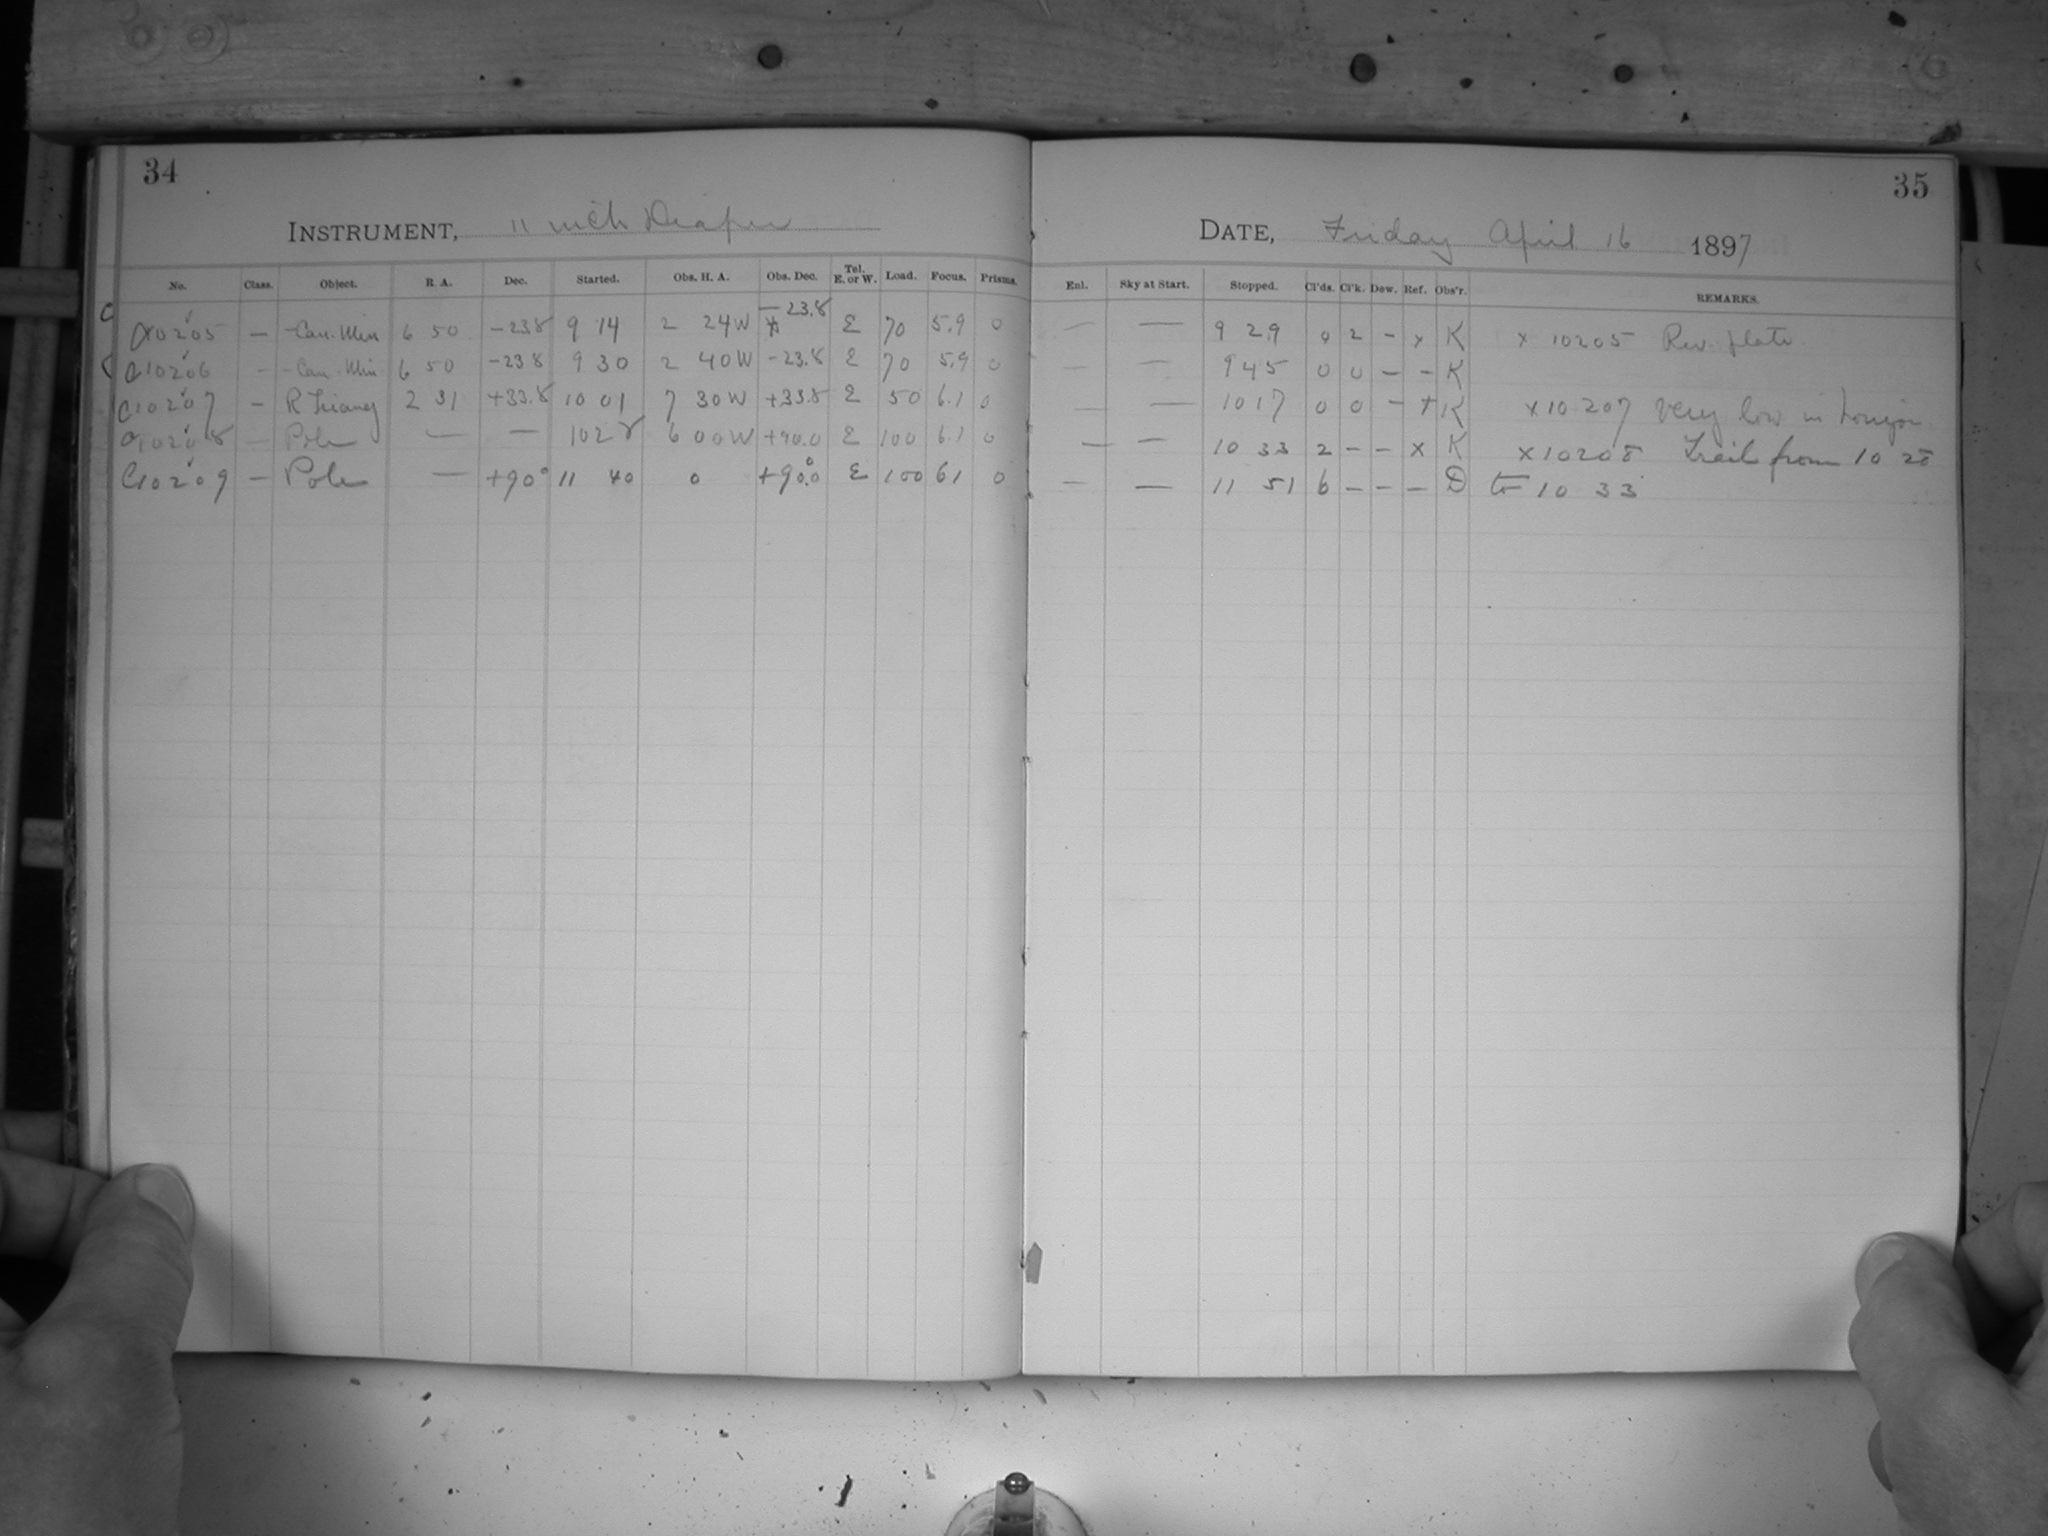 34
INSTRUMENT, 11 inch Draper
No. Class. Object. R. A. Dec. Started. Obs. H. A. Obs. Dec. Tel. E. or W. Load. Focus. Prisms.
C10205 — Can. Min 6 50 -23.8 9 14 2 24W -23.8 E 70 5.9 0
C10206 - Can. Min 6 50 -23 8 9 30 2 40W -23.8 E 70 5.9 0
C10207 - R Triang 2 31 +33.8 10 01 7 30W +33.8 E 50 6.1 0
C10208 — Pole — — 10 28 6 00W +90.0 E 100 6.1 0
C10209 — Pole — +90° 11 40 0 +90.0 E 100 61 0
35
DATE, Friday April 16 1897
Enl. Sky at Start. Stopped. Cl'ds. Cl'k. Dew. Ref. Obs'r. REMARKS.
— — 9 29 0 2 - x K x 10205 Rev. plate
— — 9 45 0 0 — — K
— — 10 17 0 0 - x K x 10207 very low in horizon
— — 10 33 2 - - x K x 10208 Trail from 10 28
— — 11 51 6 - - - D to 10 33